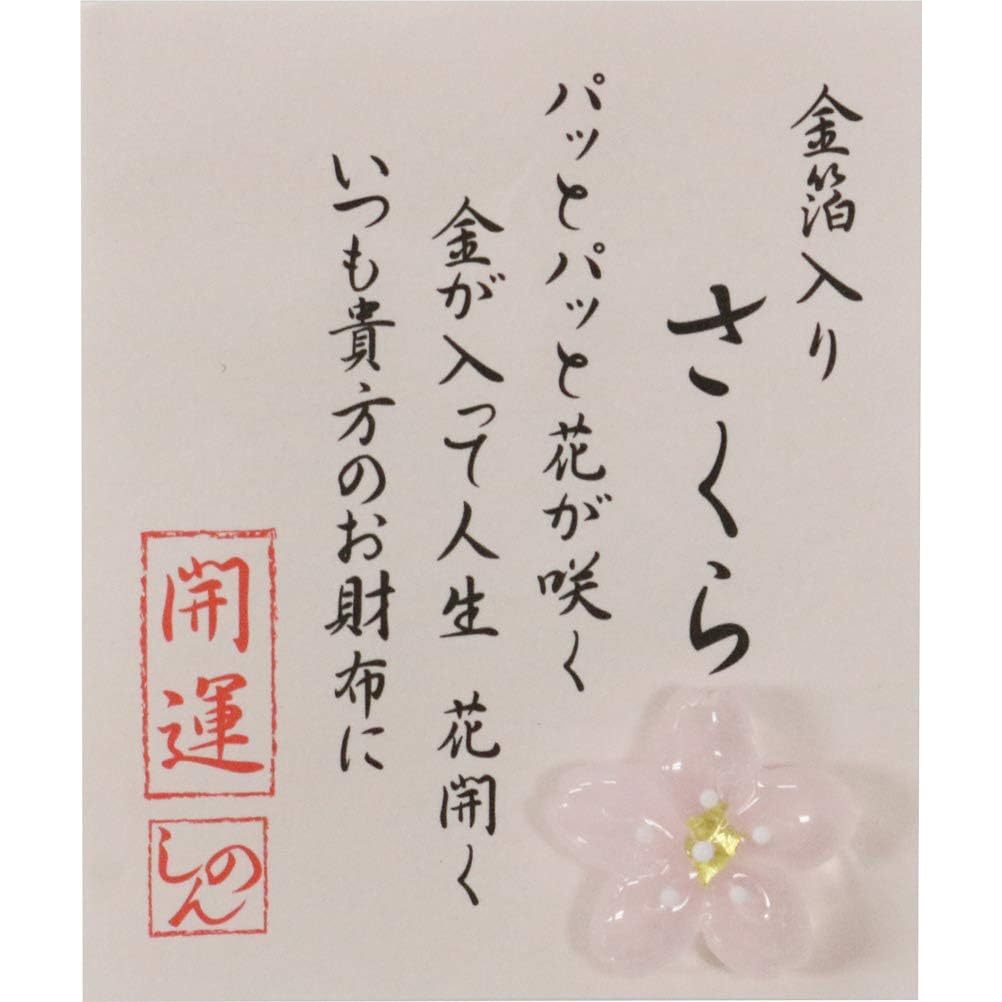 金箔入り
さくら
パッとパッと花が咲く
金が入って人生　花開く
いつも貴方のお財布に
開運
しのん